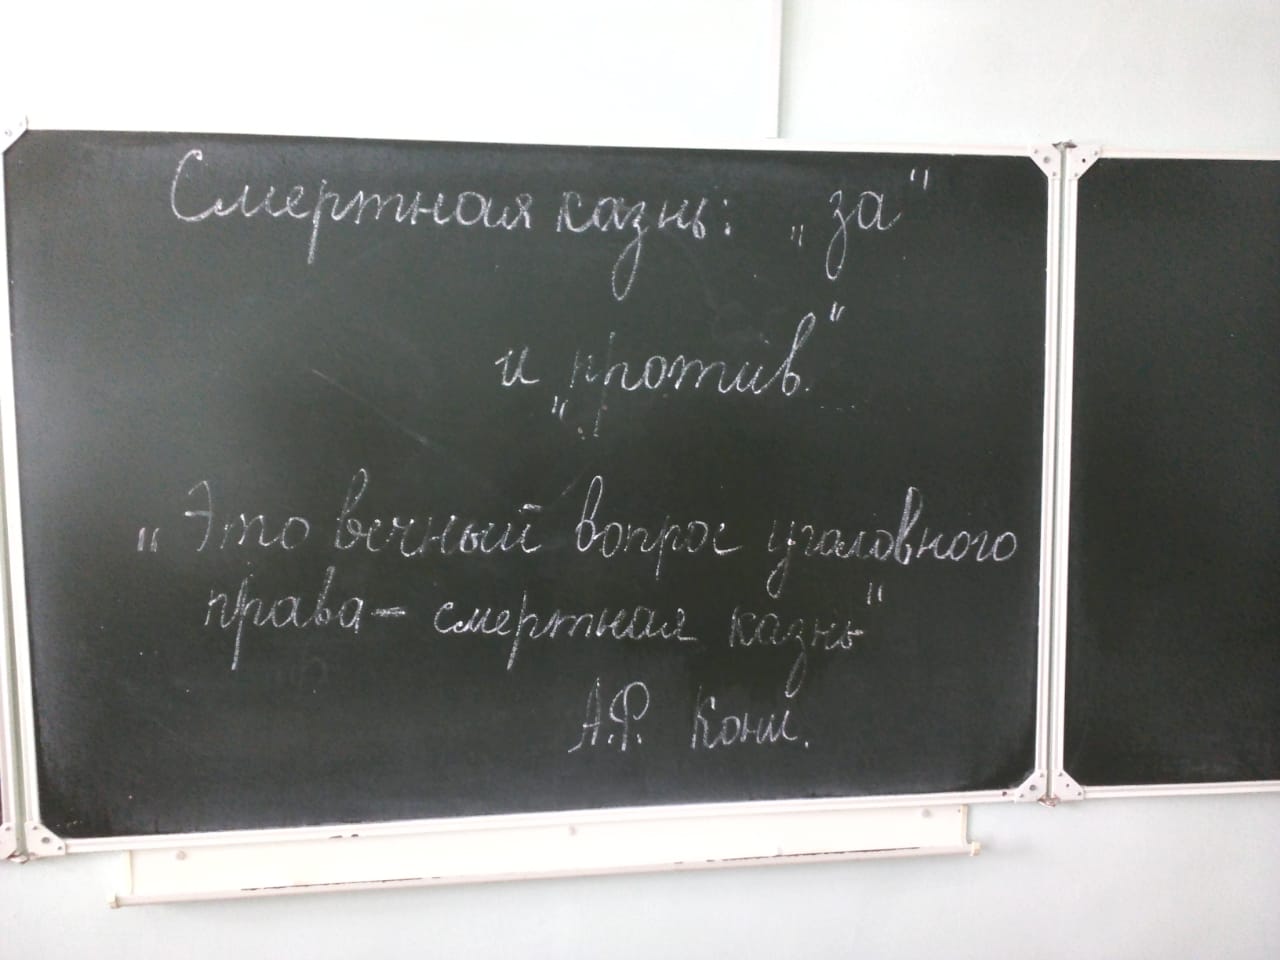 Смертная казнь: „за"
и „против."
„Это вечный вопрос уголовного
права – смертная казнь"
А.Ф. Кони.